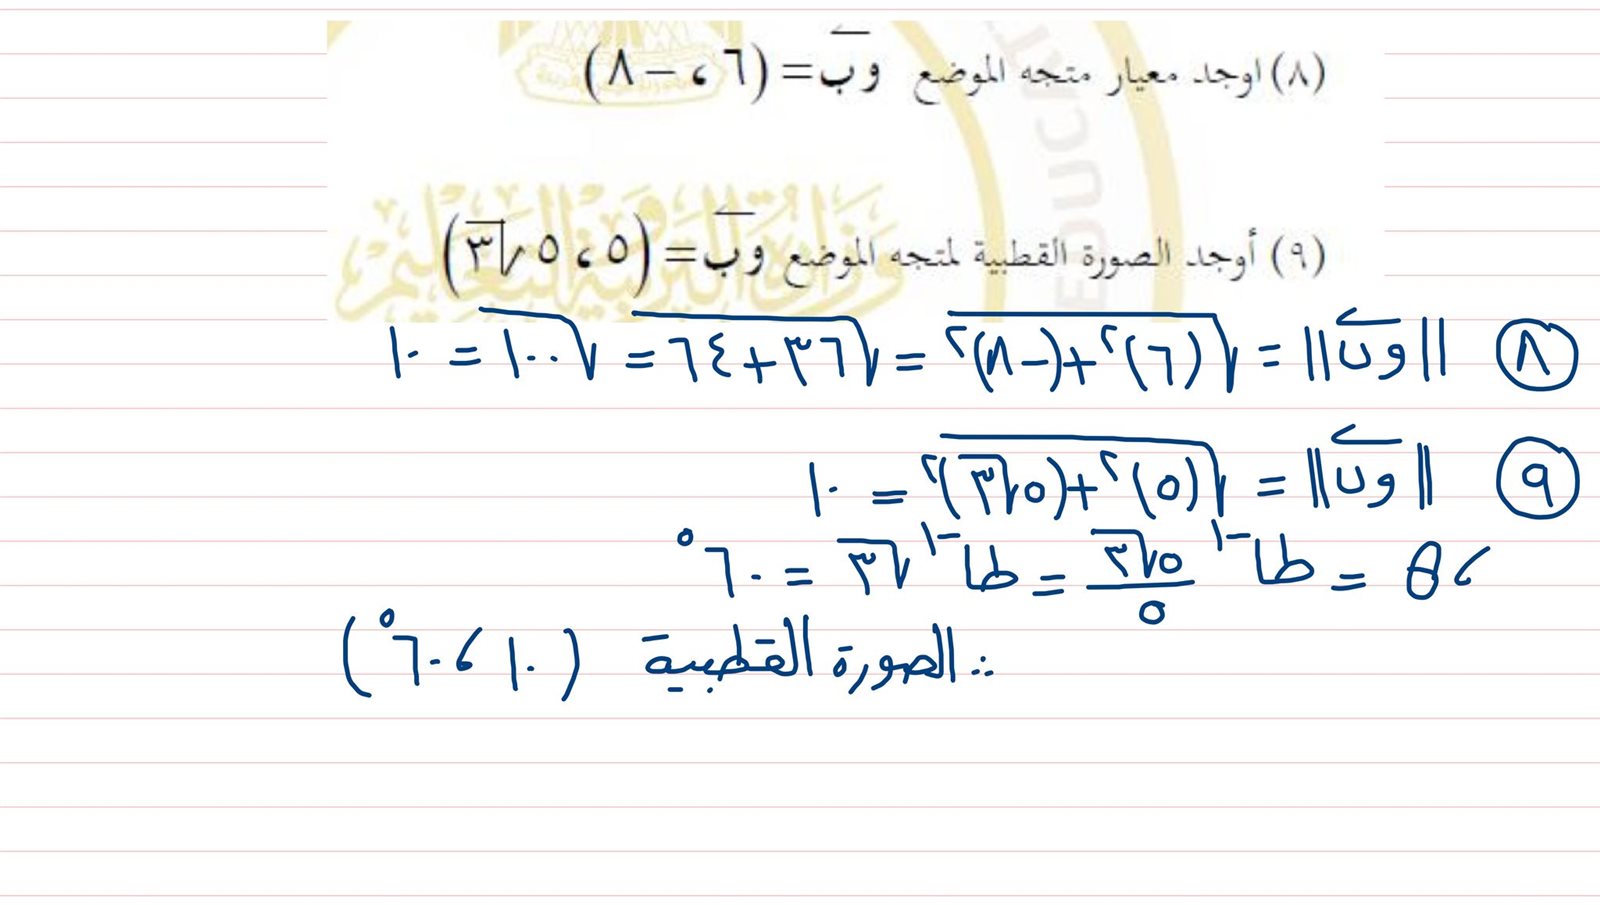 (٨) اوجد معيار متجه الموضع وب = (٦ ، −٨)
(٩) أوجد الصورة القطبية لمتجه الموضع وب = (٥ ، ٥√٣)
٨ ||وب|| = √(٦)² + (−٨)² = √٣٦+٦٤ = √١٠٠ = ١٠
٩ ||وب|| = √(٥)² + (٥√٣)² = ١٠
، θ = طا⁻¹ ٥√٣/٥ = طا⁻¹ √٣ = ٦٠°
∴ الصورة القطبية (١٠ ، ٦٠°)